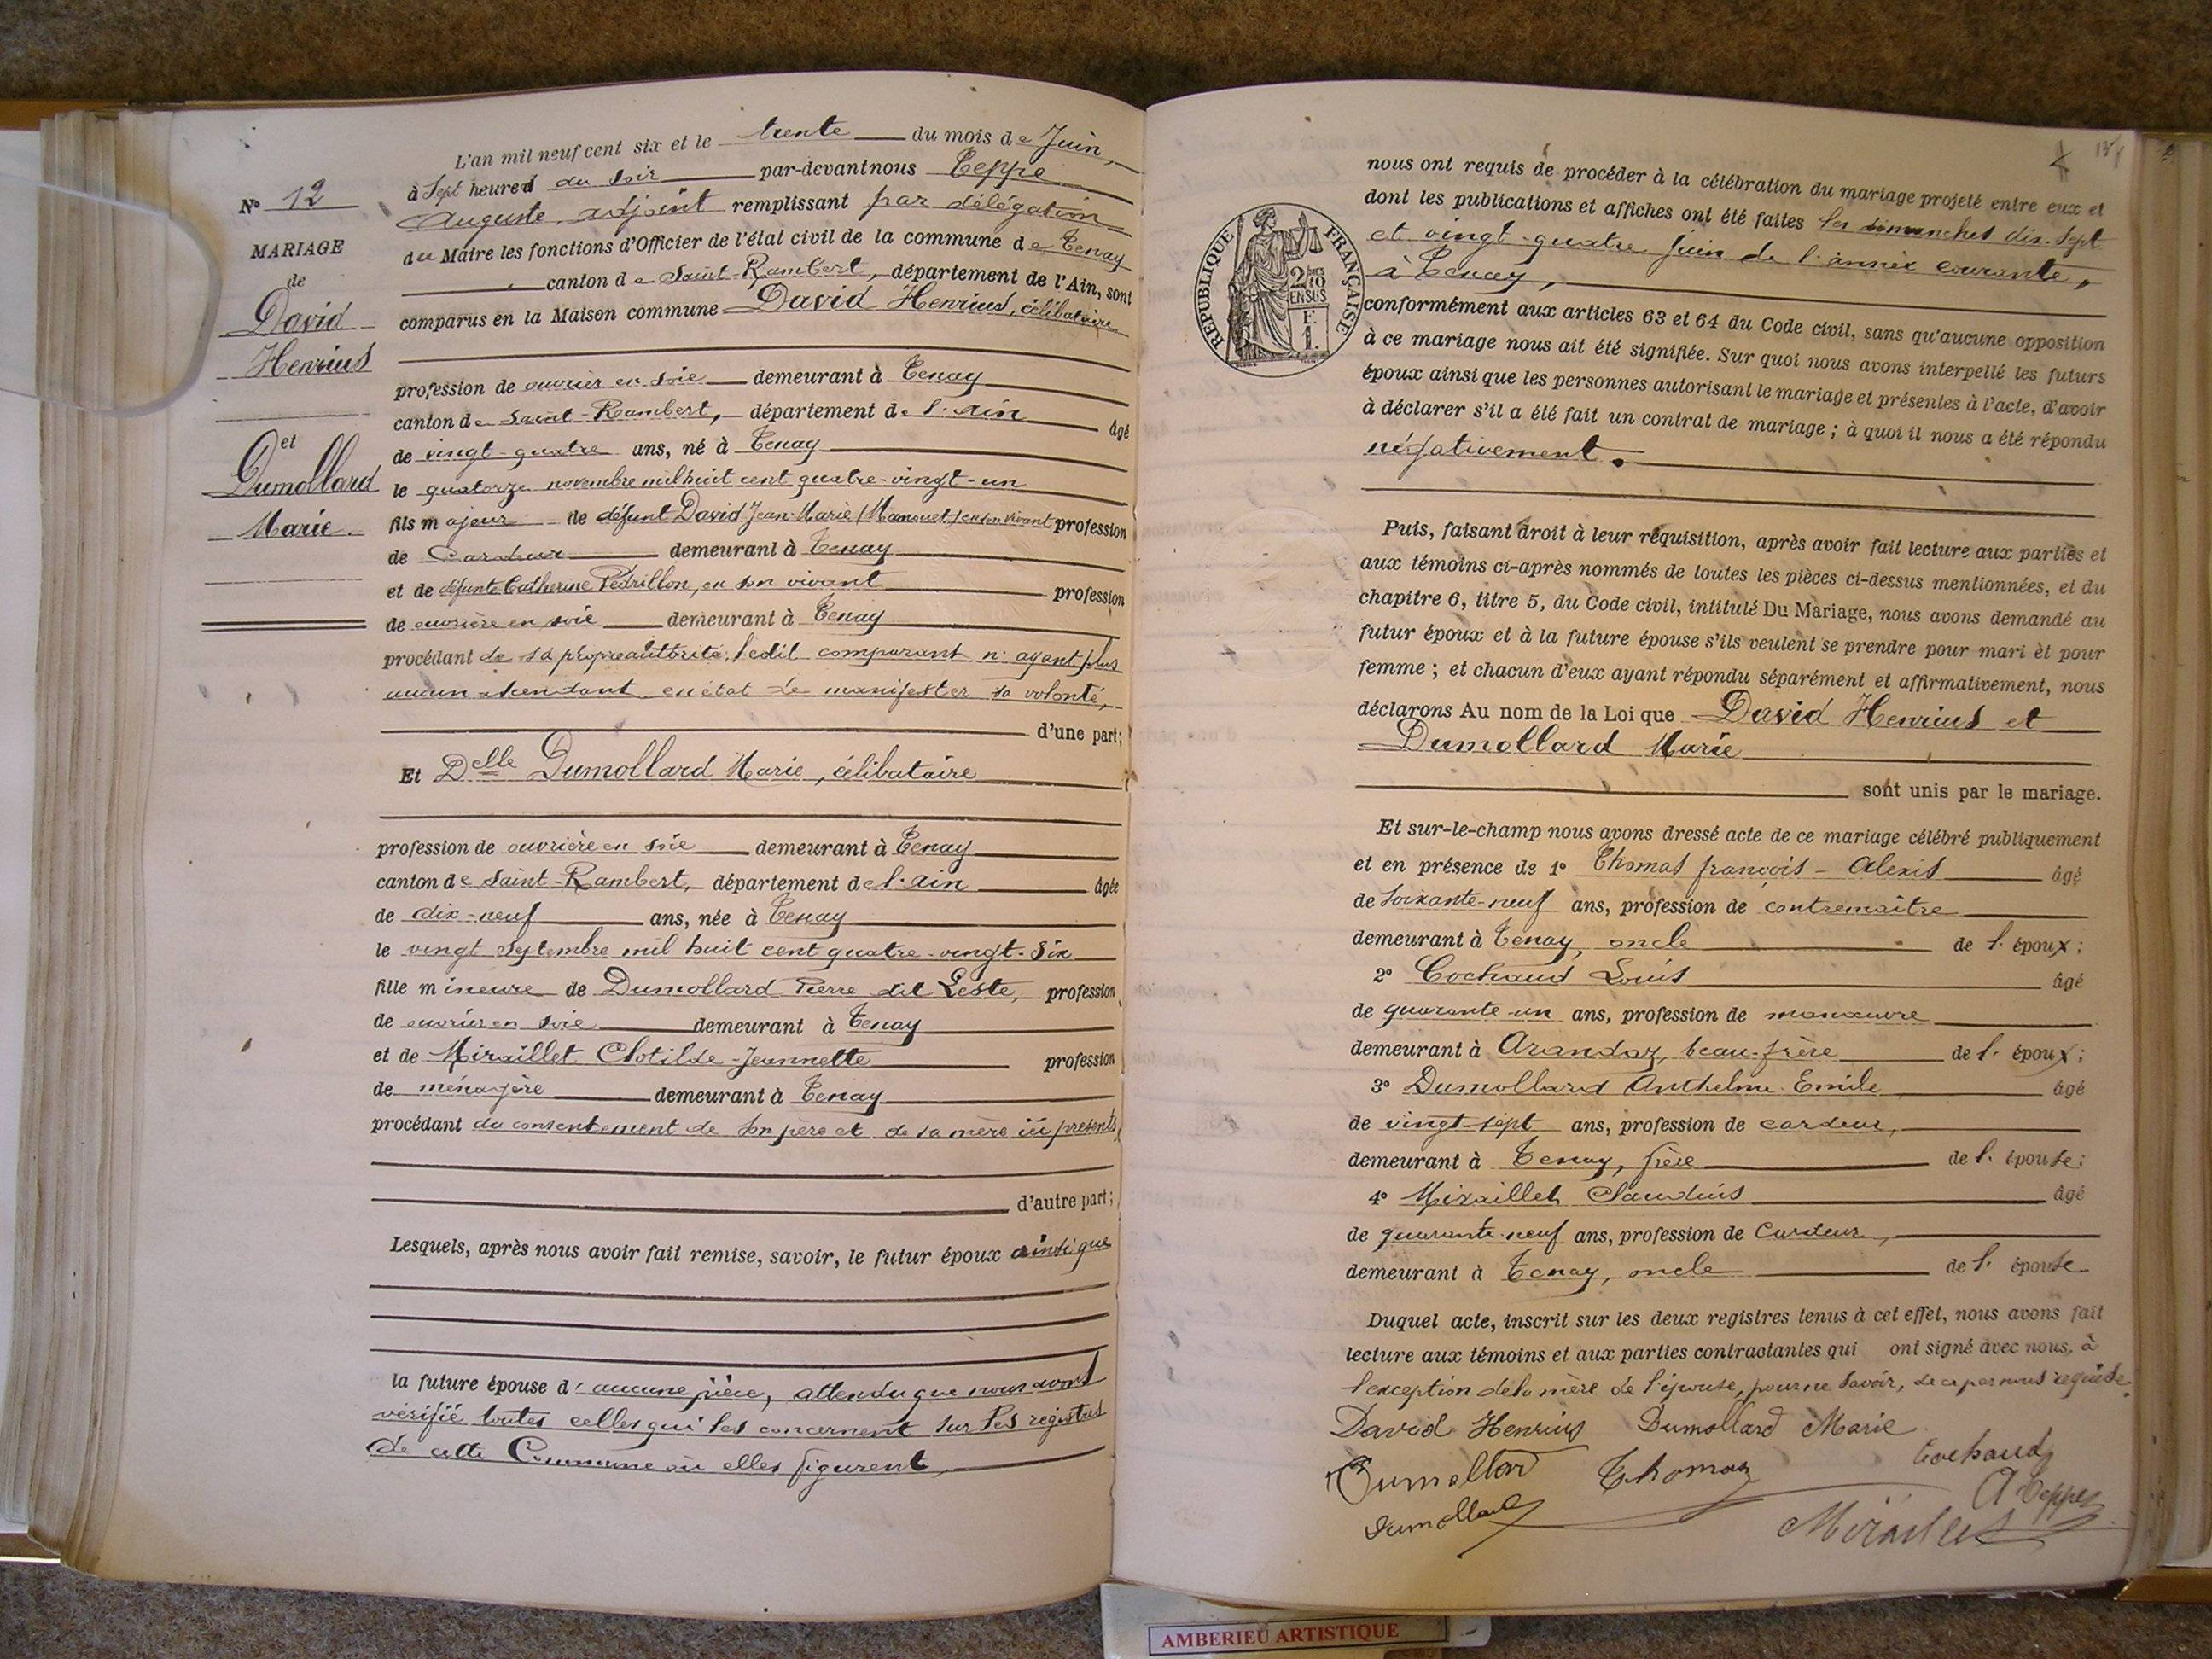 L'an mil neuf cent six et le trente du mois de Juin,
à Sept heures du soir par-devant nous Teppe
Auguste, adjoint remplissant par délégation
du Maire les fonctions d'Officier de l'état civil de la commune de Tenay
canton de Saint-Rambert, département de l'Ain, sont
comparus en la Maison commune David Henrius, célibataire
profession de ouvrier en soie demeurant à Tenay
canton de Saint-Rambert, département de l'Ain âgé
de vingt-quatre ans, né à Tenay
le quatorze novembre mil huit cent quatre-vingt-un
fils majeur de défunt David Jean-Marie (Mansuet) en son vivant profession
de Cardeur demeurant à Tenay
et de défunte Catherine Pédrillon, en son vivant profession
de ouvrière en soie demeurant à Tenay
procédant de sa propre autorité, ledit comparant n'ayant plus
aucun ascendant en état de manifester sa volonté,
d'une part;
Et Delle Dumollard Marie, célibataire
profession de ouvrière en soie demeurant à Tenay
canton de Saint-Rambert, département de l'Ain âgée
de dix-neuf ans, née à Tenay
le vingt Septembre mil huit cent quatre-vingt-six
fille mineure de Dumollard Pierre dit Leste, profession
de ouvrier en soie demeurant à Tenay
et de Miraillet Clotilde-Jeannette profession
de ménagère demeurant à Tenay
procédant du consentement de son père et de sa mère ici présents,
d'autre part;
Lesquels, après nous avoir fait remise, savoir, le futur époux ainsi que
la future épouse d'aucune pièce, attendu que nous avons
vérifié toutes celles qui les concernent sur les registres
de cette Commune où elles figurent,
No 12
MARIAGE
de
David
Henrius
et
Dumollard
Marie.
nous ont requis de procéder à la célébration du mariage projeté entre eux et
dont les publications et affiches ont été faites les dimanches dix-sept
et vingt-quatre juin de l'année courante,
à Tenay,
conformément aux articles 63 et 64 du Code civil, sans qu'aucune opposition
à ce mariage nous ait été signifiée. Sur quoi nous avons interpellé les futurs
époux ainsi que les personnes autorisant le mariage et présentes à l'acte, d'avoir
à déclarer s'il a été fait un contrat de mariage; à quoi il nous a été répondu
négativement.
Puis, faisant droit à leur réquisition, après avoir fait lecture aux parties et
aux témoins ci-après nommés de toutes les pièces ci-dessus mentionnées, et du
chapitre 6, titre 5, du Code civil, intitulé Du Mariage, nous avons demandé au
futur époux et à la future épouse s'ils veulent se prendre pour mari et pour
femme; et chacun d'eux ayant répondu séparément et affirmativement, nous
déclarons Au nom de la Loi que David Henrius et
Dumollard Marie
sont unis par le mariage.
Et sur-le-champ nous avons dressé acte de ce mariage célébré publiquement
et en présence de 1° Thomas françois-Alexis âgé
de soixante-neuf ans, profession de contremaître
demeurant à Tenay, oncle de l'époux;
2° Cochaud Louis âgé
de quarante-un ans, profession de manœuvre
demeurant à Arandaz, beau-frère de l'époux;
3° Dumollard Anthelme-Emile âgé
de vingt-sept ans, profession de cardeur,
demeurant à Tenay, frère de l'épouse;
4° Miraillet Claudius âgé
de quarante-neuf ans, profession de Cardeur,
demeurant à Tenay, oncle de l'épouse
Duquel acte, inscrit sur les deux registres tenus à cet effet, nous avons fait
lecture aux témoins et aux parties contractantes qui ont signé avec nous, à
l'exception de la mère de l'épouse, pour ne savoir, de ce par nous requise.
David Henrius Dumollard Marie
Dumollard Thomas Cochaud
Dumollard A Teppe
Miraillet
RÉPUBLIQUE FRANÇAISE
2/10 EN SUS
F. 1.
AMBERIEU ARTISTIQUE